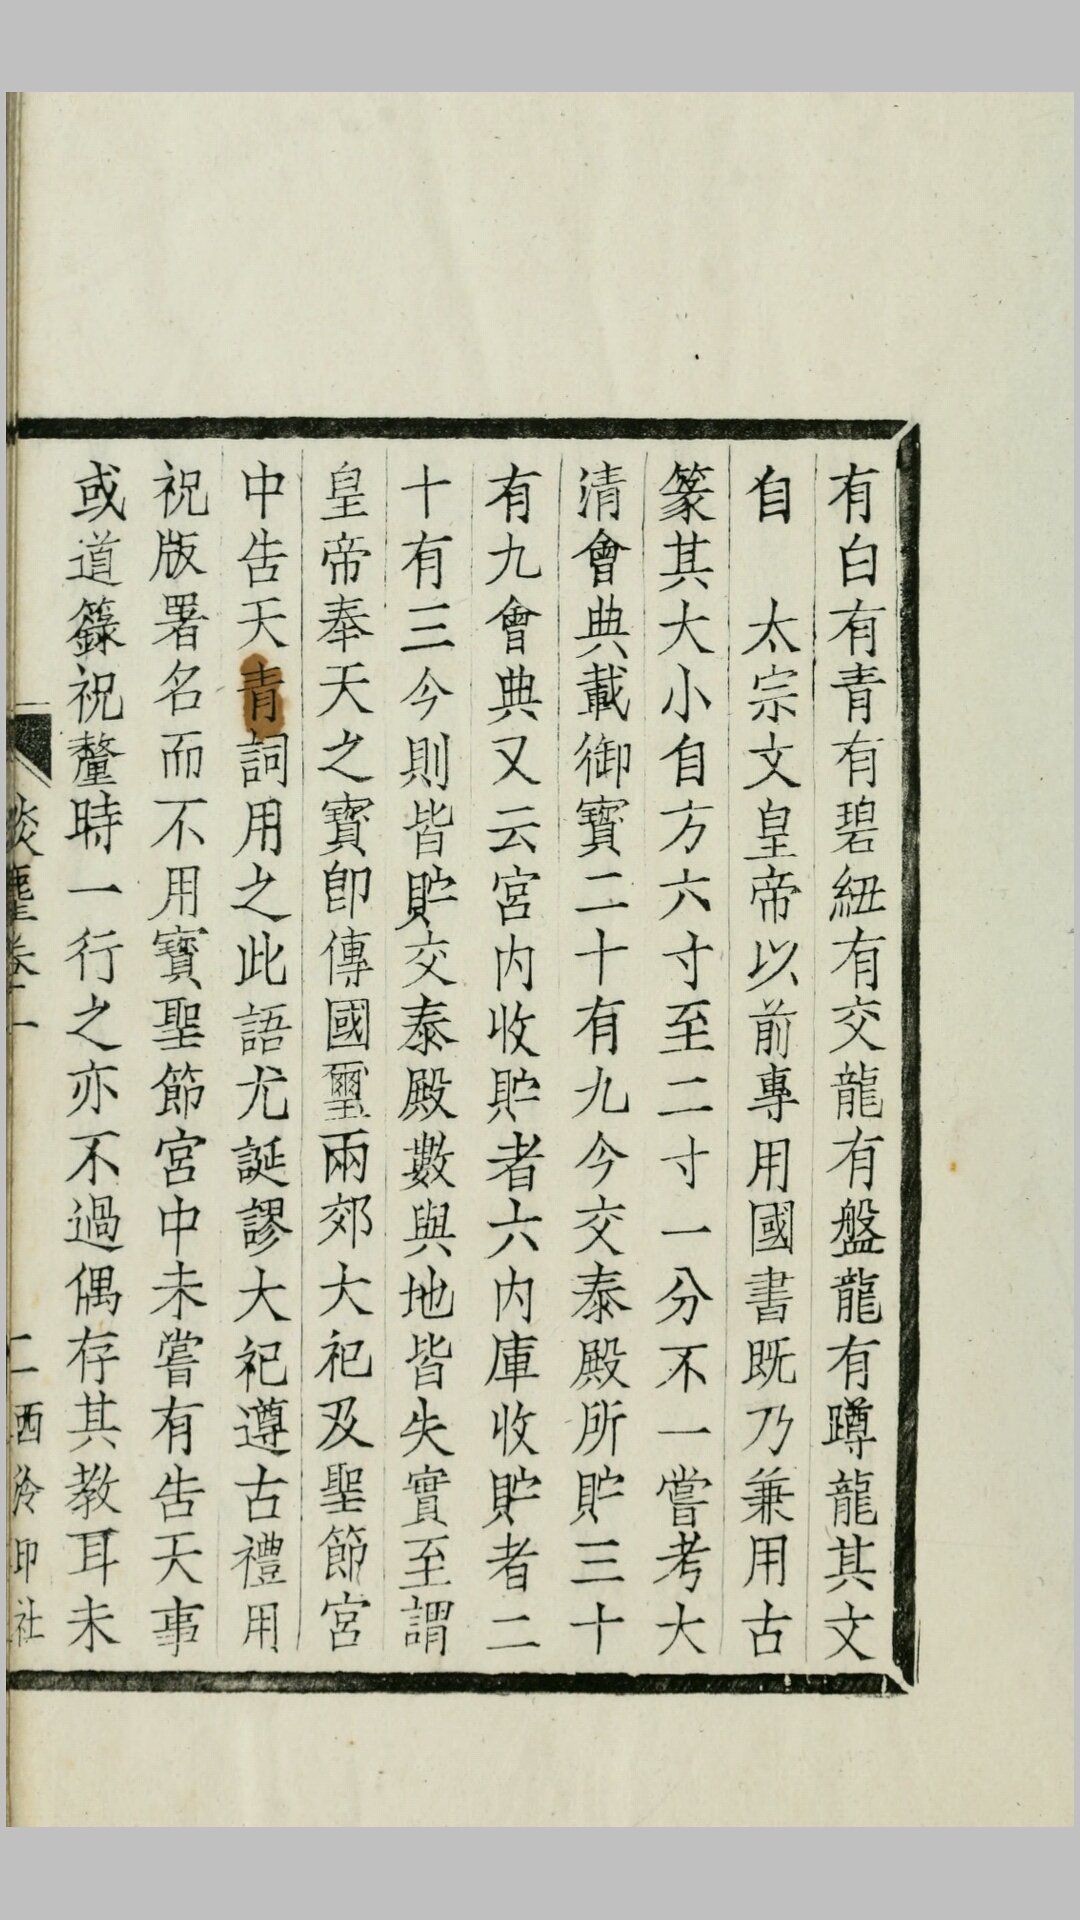 有白有青有碧紐有交龍有盤龍有蹲龍其文
自　太宗文皇帝以前專用國書既乃兼用古
篆其大小自方六寸至二寸一分不一嘗考大
清會典載御寶二十有九今交泰殿所貯三十
有九會典又云宮内收貯者六内庫收貯者二
十有三今則皆貯交泰殿數與地皆失實至謂
皇帝奉天之寶卽傳國璽兩郊大祀及聖節宮
中告天青詞用之此語尤誕謬大祀遵古禮用
祝版署名而不用寶聖節宮中未嘗有告天事
或道籙祝釐時一行之亦不過偶存其教耳未
談麈卷一
二西泠印社